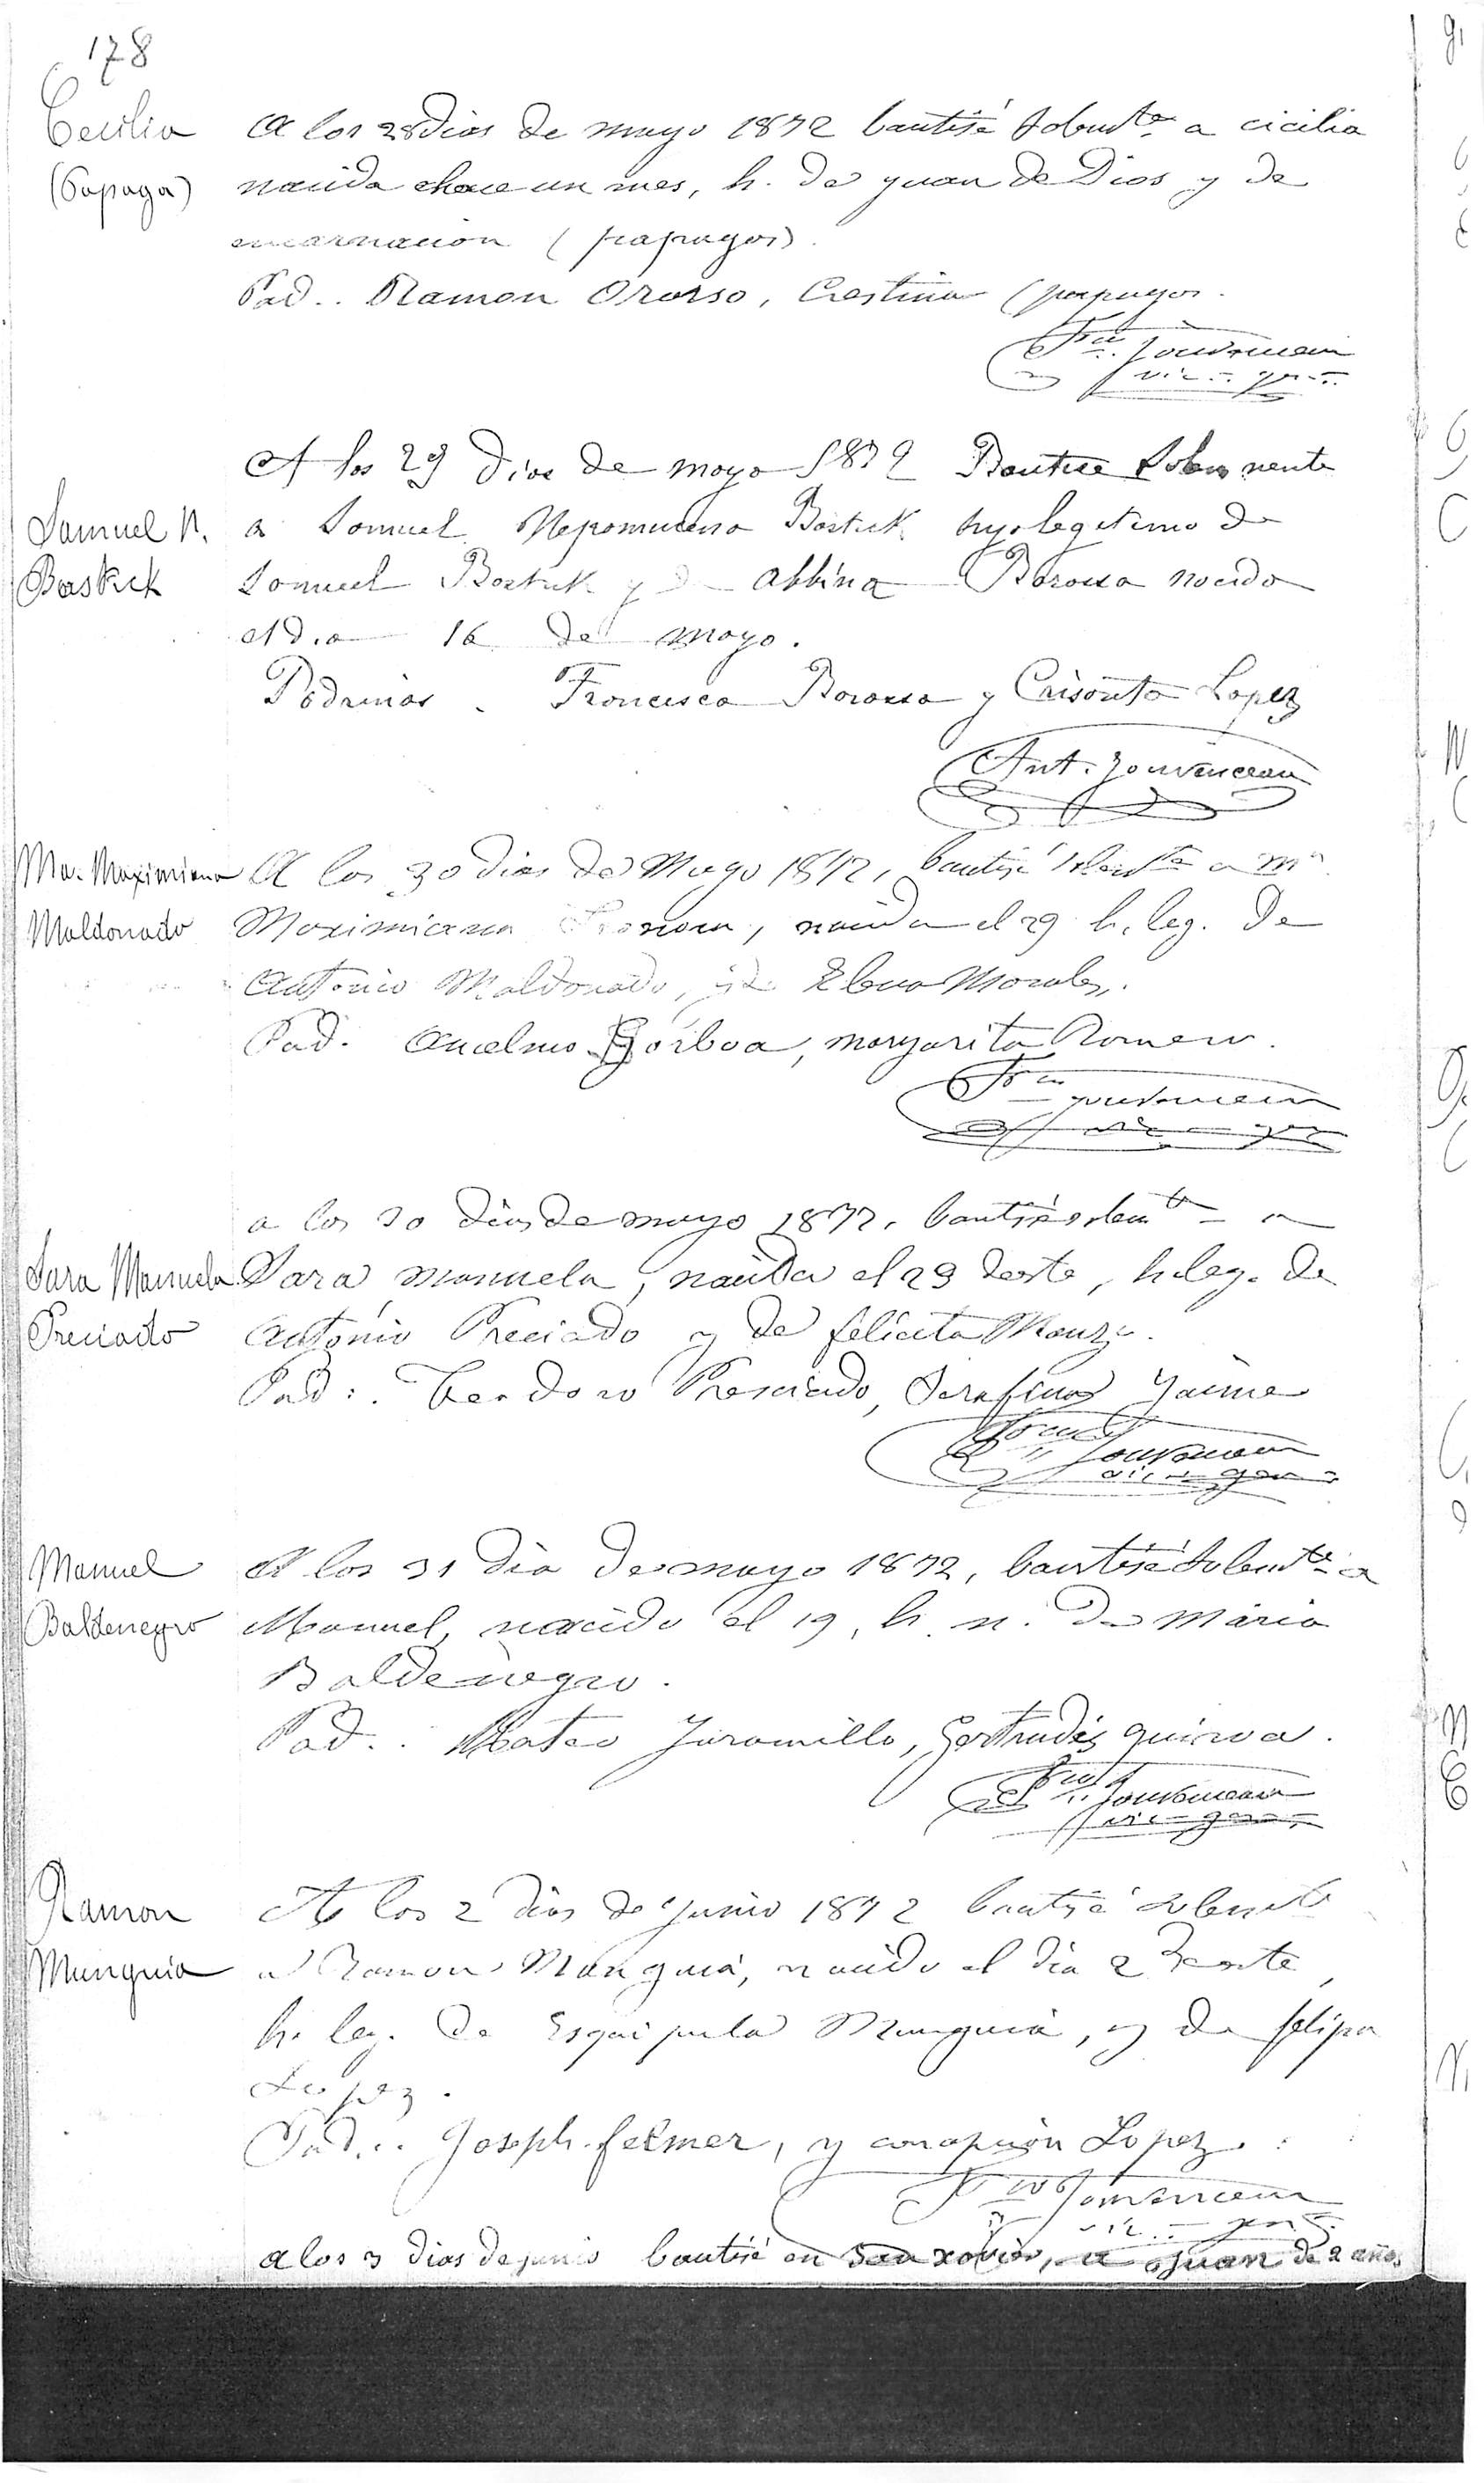 178
Cecilia
(Papaga)
A los 28 dias de mayo 1872 bautisé solemte a cicilia
nacida hace un mes, h. de yuan de Dios y de
encarnacion (papagos).
Pad.. Ramon Orosso, Crestina (papagos.
Fco. Jouvenceau
vic. gen.
Samuel N.
Bostick
A los 29 Dias de mayo 1872 Bautice Solemnente
a Samuel Nepomuceno Bostick hijo legitimo de
Samuel Bostick y de Albina Borossa nacido
el dia 16 de mayo.
Padrinos. Francisca Borossa y Crisanto Lopez
Ant. Jouvenceau
Ma. Maximiana
Maldonado
A los 30 dias de Mayo 1872, bautisé solemte a Ma
Maximiana, nacida el 29 h. leg. de
Antonio Maldonado, y de Elena Morales.
Pad. Ancelmo Gorboa, margarita Romero.
Fco. Jouvenceau
vic. gen.
Sara Manuela
Preciado
a los 30 dias de mayo 1872, bautisé solemte a
Sara manuela, nacida el 29 deste, h. leg. de
Antonio Preciado y de felicita
Pad: Teodoro Presciado, Serafina Jaime
Fco. Jouvenceau
vic. gen.
Manuel
Baldenegro
A los 31 dia de mayo 1872, bautisé solemte a
Manuel, nacido el 19, h. n. de Maria
Baldenegro.
Pad.. Mateo Jaramillo, Gertrudis quiroa.
Fco. Jouvenceau
vic. gen.
Ramon
Munguia
A los 2 dias de Junio 1872 bautisé solemte
a Ramon Munguia, nacido el dia 2 deste,
h. leg. de Esquipula Munguia, y de felipa
Lopez.
Pad.. Joseph felmer, y concepcion Lopez.
Fco. Jouvenceau
vic. gen.
a los 3 dias de junio bautisé en San xavier, a Juan de 2 años